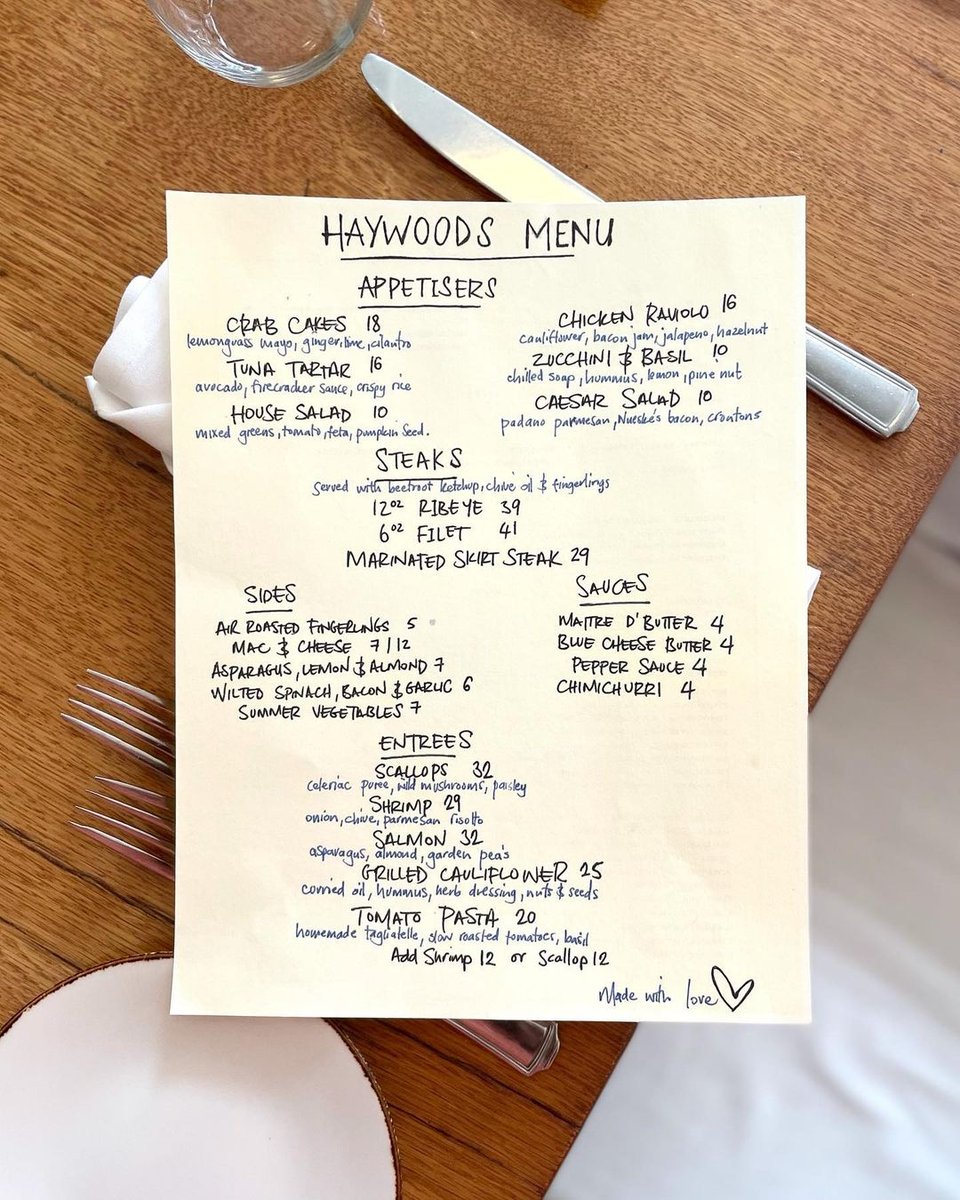 HAYWOODS MENU
APPETISERS
CRAB CAKES 18
lemongrass mayo, ginger, lime, cilantro
TUNA TARTAR 16
avocado, firecracker sauce, crispy rice
HOUSE SALAD 10
mixed greens, tomato, feta, pumpkin seed.
CHICKEN RAVIOLO 16
cauliflower, bacon jam, jalapeno, hazelnut
ZUCCHINI & BASIL 10
chilled soap, hummus, lemon, pine nut
CAESAR SALAD 10
padano parmesan, Nueske's bacon, croutons
STEAKS
Served with beetroot ketchup, chive oil & fingerlings
12oz RIBEYE 39
6oz FILET 41
MARINATED SKIRT STEAK 29
SIDES
AIR ROASTED FINGERLINGS 5
MAC & CHEESE 7/12
ASPARAGUS, LEMON & ALMOND 7
WILTED SPINACH, BACON & GARLIC 6
SUMMER VEGETABLES 7
SAUCES
MAITRE D'BUTTER 4
BLUE CHEESE BUTTER 4
PEPPER SAUCE 4
CHIMICHURRI 4
ENTREES
SCALLOPS 32
celeriac puree, wild mushrooms, paisley
SHRIMP 29
onion, chive, parmesan risotto
SALMON 32
asparagus, almond, garden pea's
GRILLED CAULIFLOWER 25
curried oil, hummus, herb dressing, nuts & seeds
TOMATO PASTA 20
homemade tagliatelle, slow roasted tomatoes, basil
Add Shrimp 12 or Scallop 12
Made with love